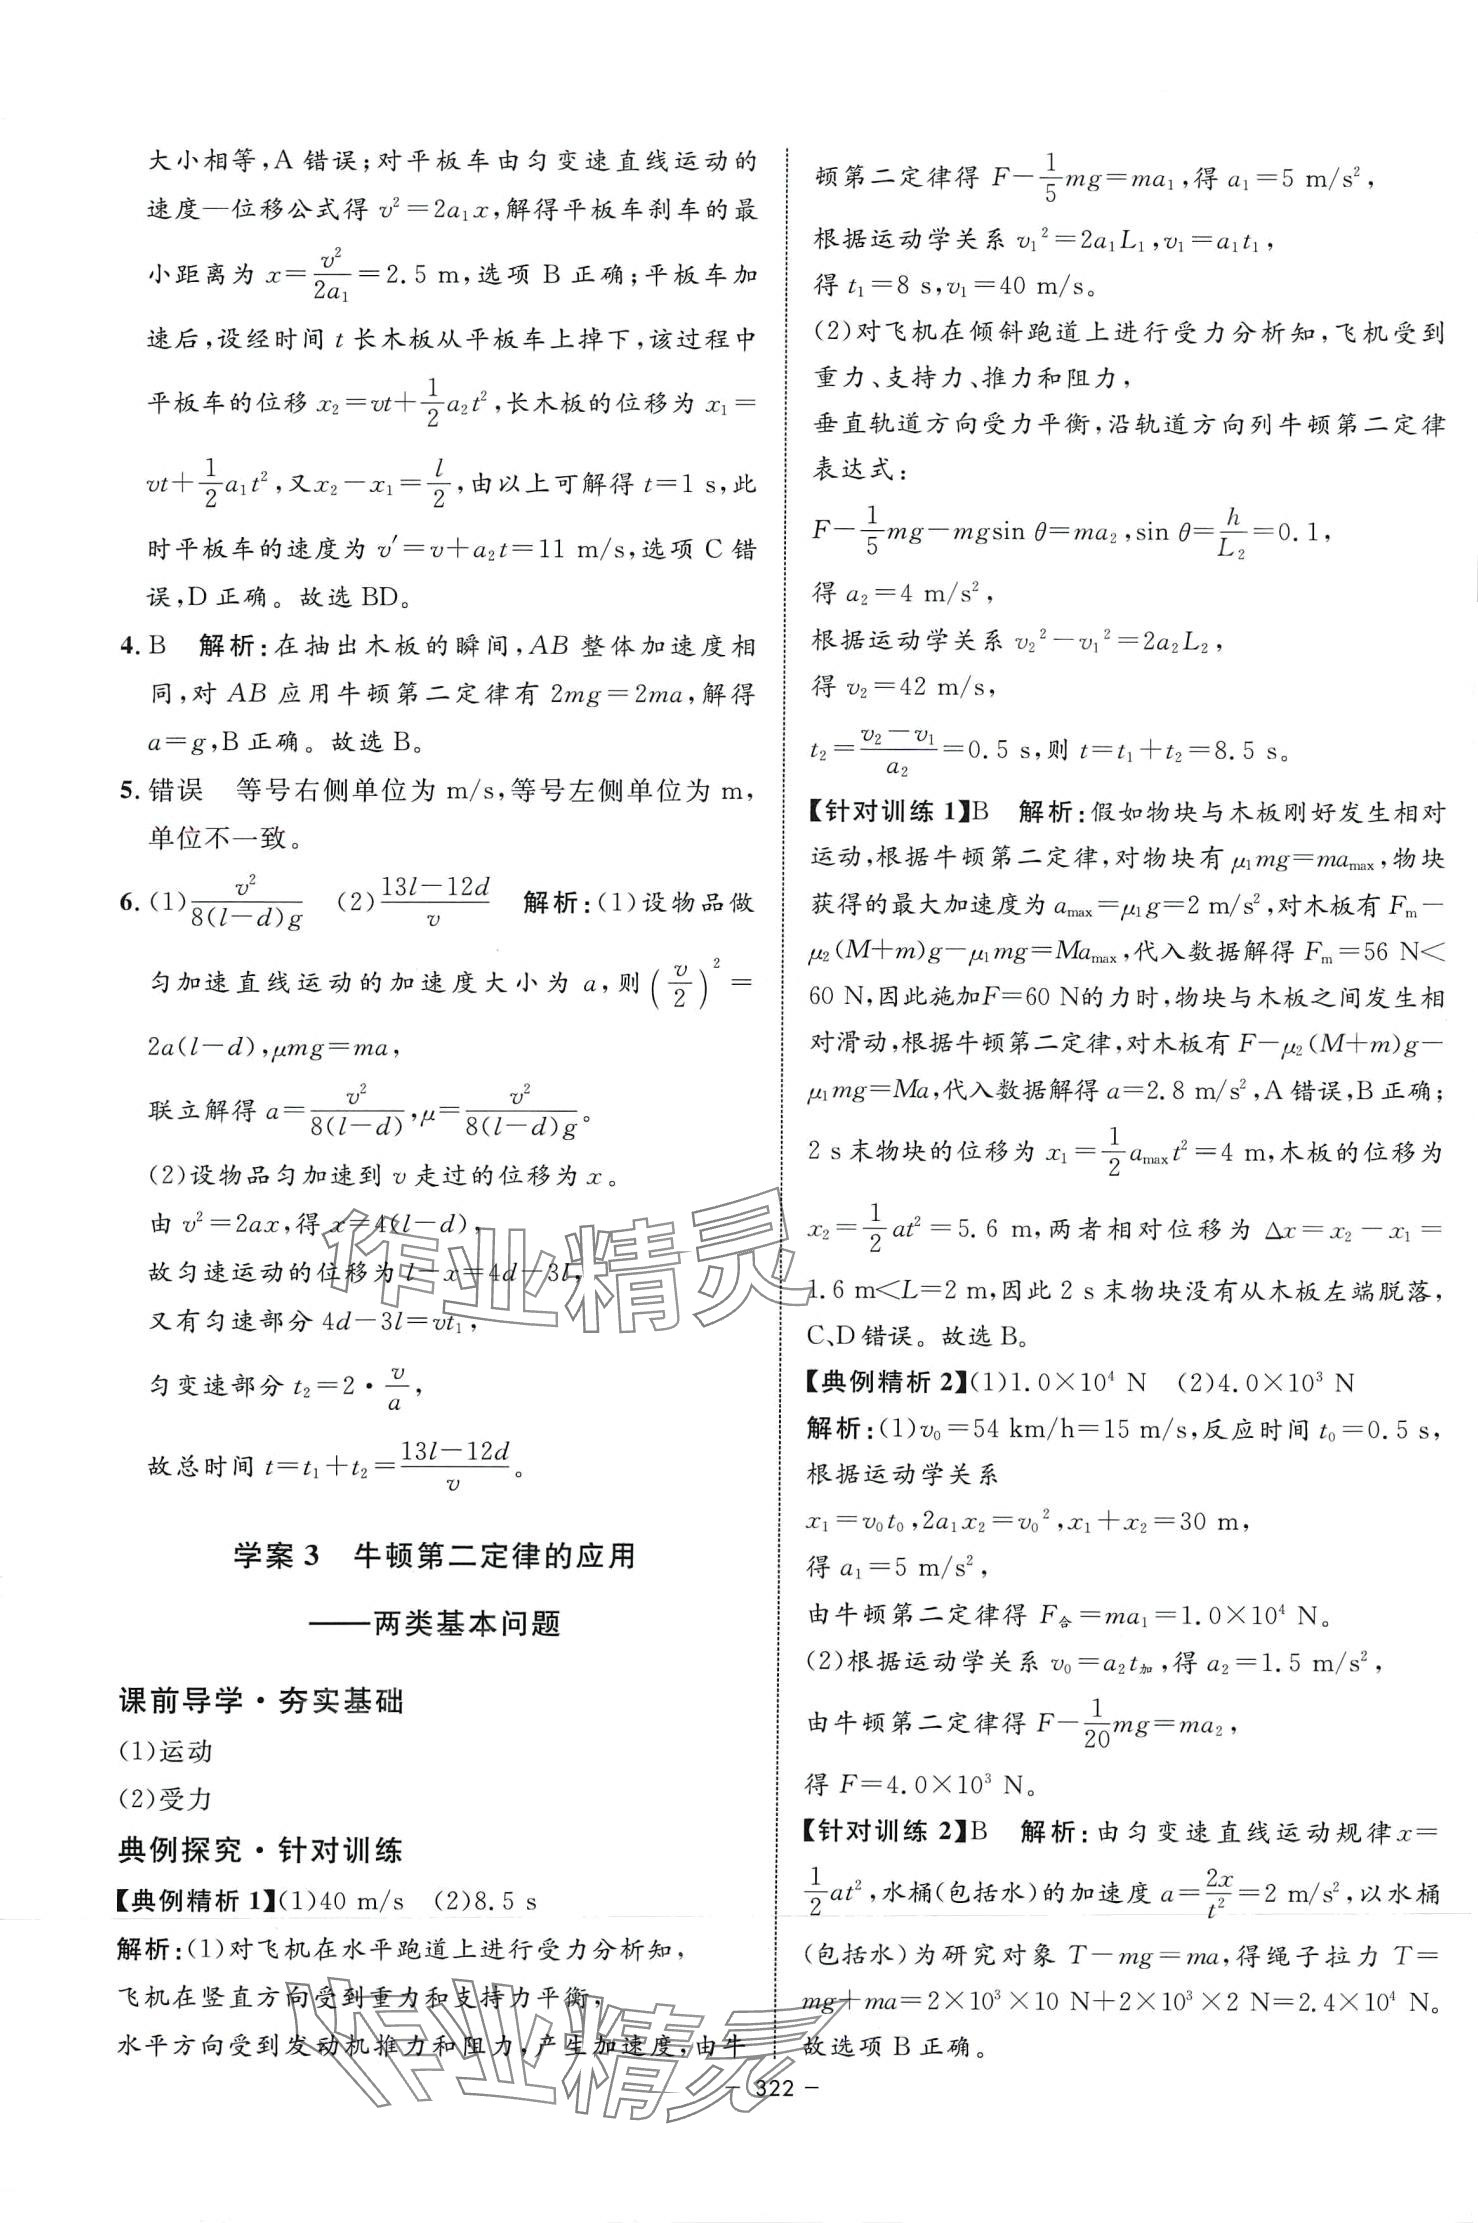 大小相等,A 错误;对平板车由匀变速直线运动的
速度—位移公式得 v²=2a₁x,解得平板车刹车的最
小距离为 x=v²/2a₁=2.5 m,选项 B 正确;平板车加
速后,设经时间 t 长木板从平板车上掉下,该过程中
平板车的位移 x₂=vt+1/2a₂t²,长木板的位移为 x₁=
vt+1/2a₁t²,又x₂-x₁=l/2,由以上可解得 t=1 s,此
时平板车的速度为 v′=v+a₂t=11 m/s,选项 C 错
误,D 正确。故选 BD。
4. B 解析:在抽出木板的瞬间,AB 整体加速度相
同,对 AB 应用牛顿第二定律有 2mg=2ma,解得
a=g,B 正确。故选 B。
5. 错误 等号右侧单位为 m/s,等号左侧单位为 m,
单位不一致。
6. (1)v²/8(l-d)g (2)(13l-12d)/v 解析:(1)设物品做
匀加速直线运动的加速度大小为 a,则(v/2)²=
2a(l-d),μmg=ma,
联立解得 a=v²/8(l-d),μ=v²/8(l-d)g。
(2)设物品匀加速到 v 走过的位移为 x。
由 v²=2ax,得 x=4(l-d),
故匀速运动的位移为 l-x=4d-3l,
又有匀速部分 4d-3l=vt₁,
匀变速部分 t₂=2·v/a,
故总时间 t=t₁+t₂=(13l-12d)/v。
学案 3 牛顿第二定律的应用
——两类基本问题
课前导学·夯实基础
(1)运动
(2)受力
典例探究·针对训练
【典例精析 1】(1)40 m/s (2)8.5 s
解析:(1)对飞机在水平跑道上进行受力分析知,
飞机在竖直方向受到重力和支持力平衡,
水平方向受到发动机推力和阻力,产生加速度,由牛
顿第二定律得 F-1/5mg=ma₁,得 a₁=5 m/s²,
根据运动学关系 v₁²=2a₁L₁,v₁=a₁t₁,
得 t₁=8 s,v₁=40 m/s。
(2)对飞机在倾斜跑道上进行受力分析知,飞机受到
重力、支持力、推力和阻力,
垂直轨道方向受力平衡,沿轨道方向列牛顿第二定律
表达式:
F-1/5mg-mgsin θ=ma₂,sin θ=h/L₂=0.1,
得 a₂=4 m/s²,
根据运动学关系 v₂²-v₁²=2a₂L₂,
得 v₂=42 m/s,
t₂=(v₂-v₁)/a₂=0.5 s,则 t=t₁+t₂=8.5 s。
【针对训练 1】B 解析:假如物块与木板刚好发生相对
运动,根据牛顿第二定律,对物块有 μ₁mg=ma_max,物块
获得的最大加速度为 a_max=μ₁g=2 m/s²,对木板有 F_m-
μ₂(M+m)g-μ₁mg=Ma_max,代入数据解得 F_m=56 N<
60 N,因此施加F=60 N的力时,物块与木板之间发生相
对滑动,根据牛顿第二定律,对木板有 F-μ₂(M+m)g-
μ₁mg=Ma,代入数据解得 a=2.8 m/s²,A 错误,B 正确;
2 s末物块的位移为 x₁=1/2a_max t²=4 m,木板的位移为
x₂=1/2at²=5.6 m,两者相对位移为 Δx=x₂-x₁=
1.6 m<L=2 m,因此 2 s 末物块没有从木板左端脱落,
C、D 错误。故选 B。
【典例精析 2】(1)1.0×10⁴ N (2)4.0×10³ N
解析:(1)v₀=54 km/h=15 m/s,反应时间 t₀=0.5 s,
根据运动学关系
x₁=v₀t₀,2a₁x₂=v₀²,x₁+x₂=30 m,
得 a₁=5 m/s²,
由牛顿第二定律得 F合=ma₁=1.0×10⁴ N。
(2)根据运动学关系 v₀=a₂t加,得 a₂=1.5 m/s²,
由牛顿第二定律得 F-1/20mg=ma₂,
得 F=4.0×10³ N。
【针对训练 2】B 解析:由匀变速直线运动规律 x=
1/2at²,水桶(包括水)的加速度 a=2x/t²=2 m/s²,以水桶
(包括水)为研究对象 T-mg=ma,得绳子拉力 T=
mg+ma=2×10³×10 N+2×10³×2 N=2.4×10⁴ N。
故选项 B 正确。
作业精灵
作业精灵
– 322 –